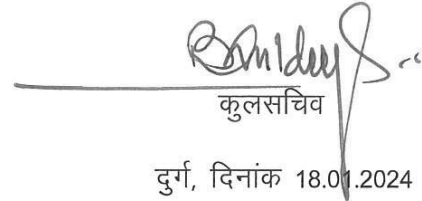 कुलसचिव
दुर्ग, दिनांक 18.01.2024